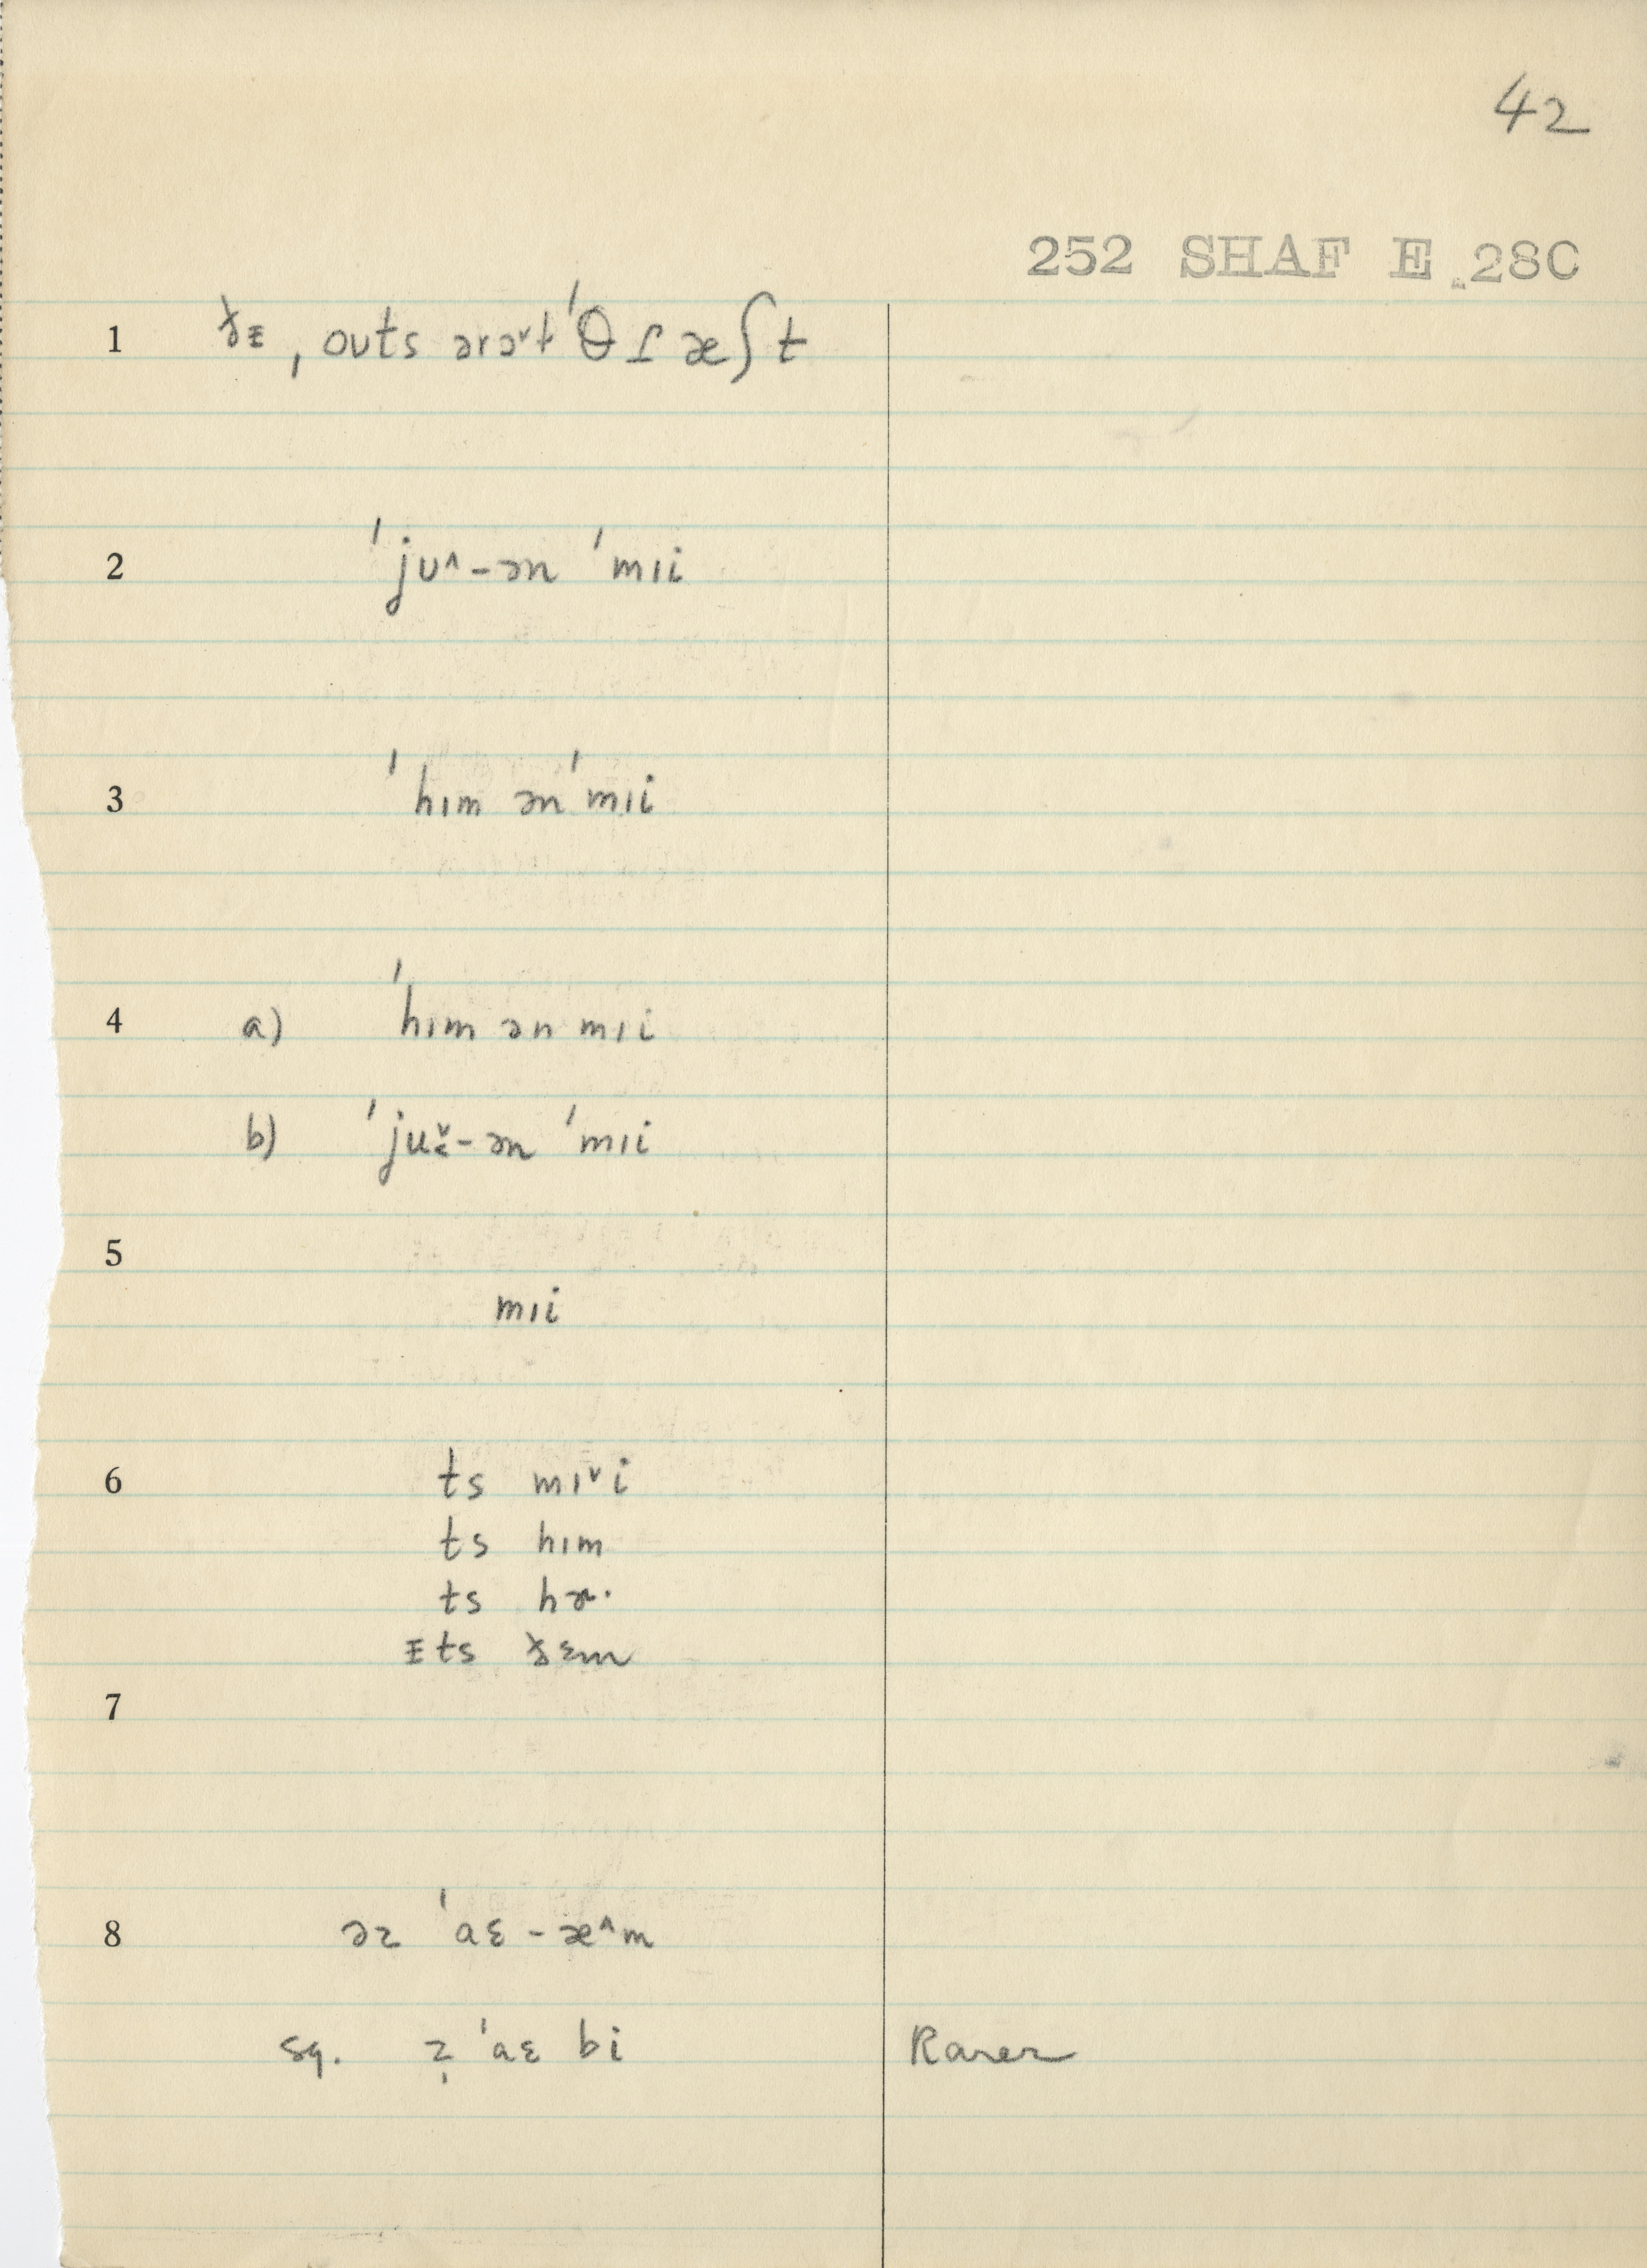 42
252 SHAF E 28C
1 ðᵻ, oʊts ərə˅t ˈθɾæʃt
2 ˈjʊ˄-ən ˈmɪi
3 ˈhɪm ən ˈmɪi
4 a) ˈhɪm ən mɪi
b) ˈjʉ˅˂-ən ˈmɪi
5
mɪi
6 ts mɪ˅i
ts hɪm
ts hɚ·
ᵻts ðɛm
7
8 əz ˈaɛ-æ˄m
sq. z̩ ˈaɛ bi Rarer